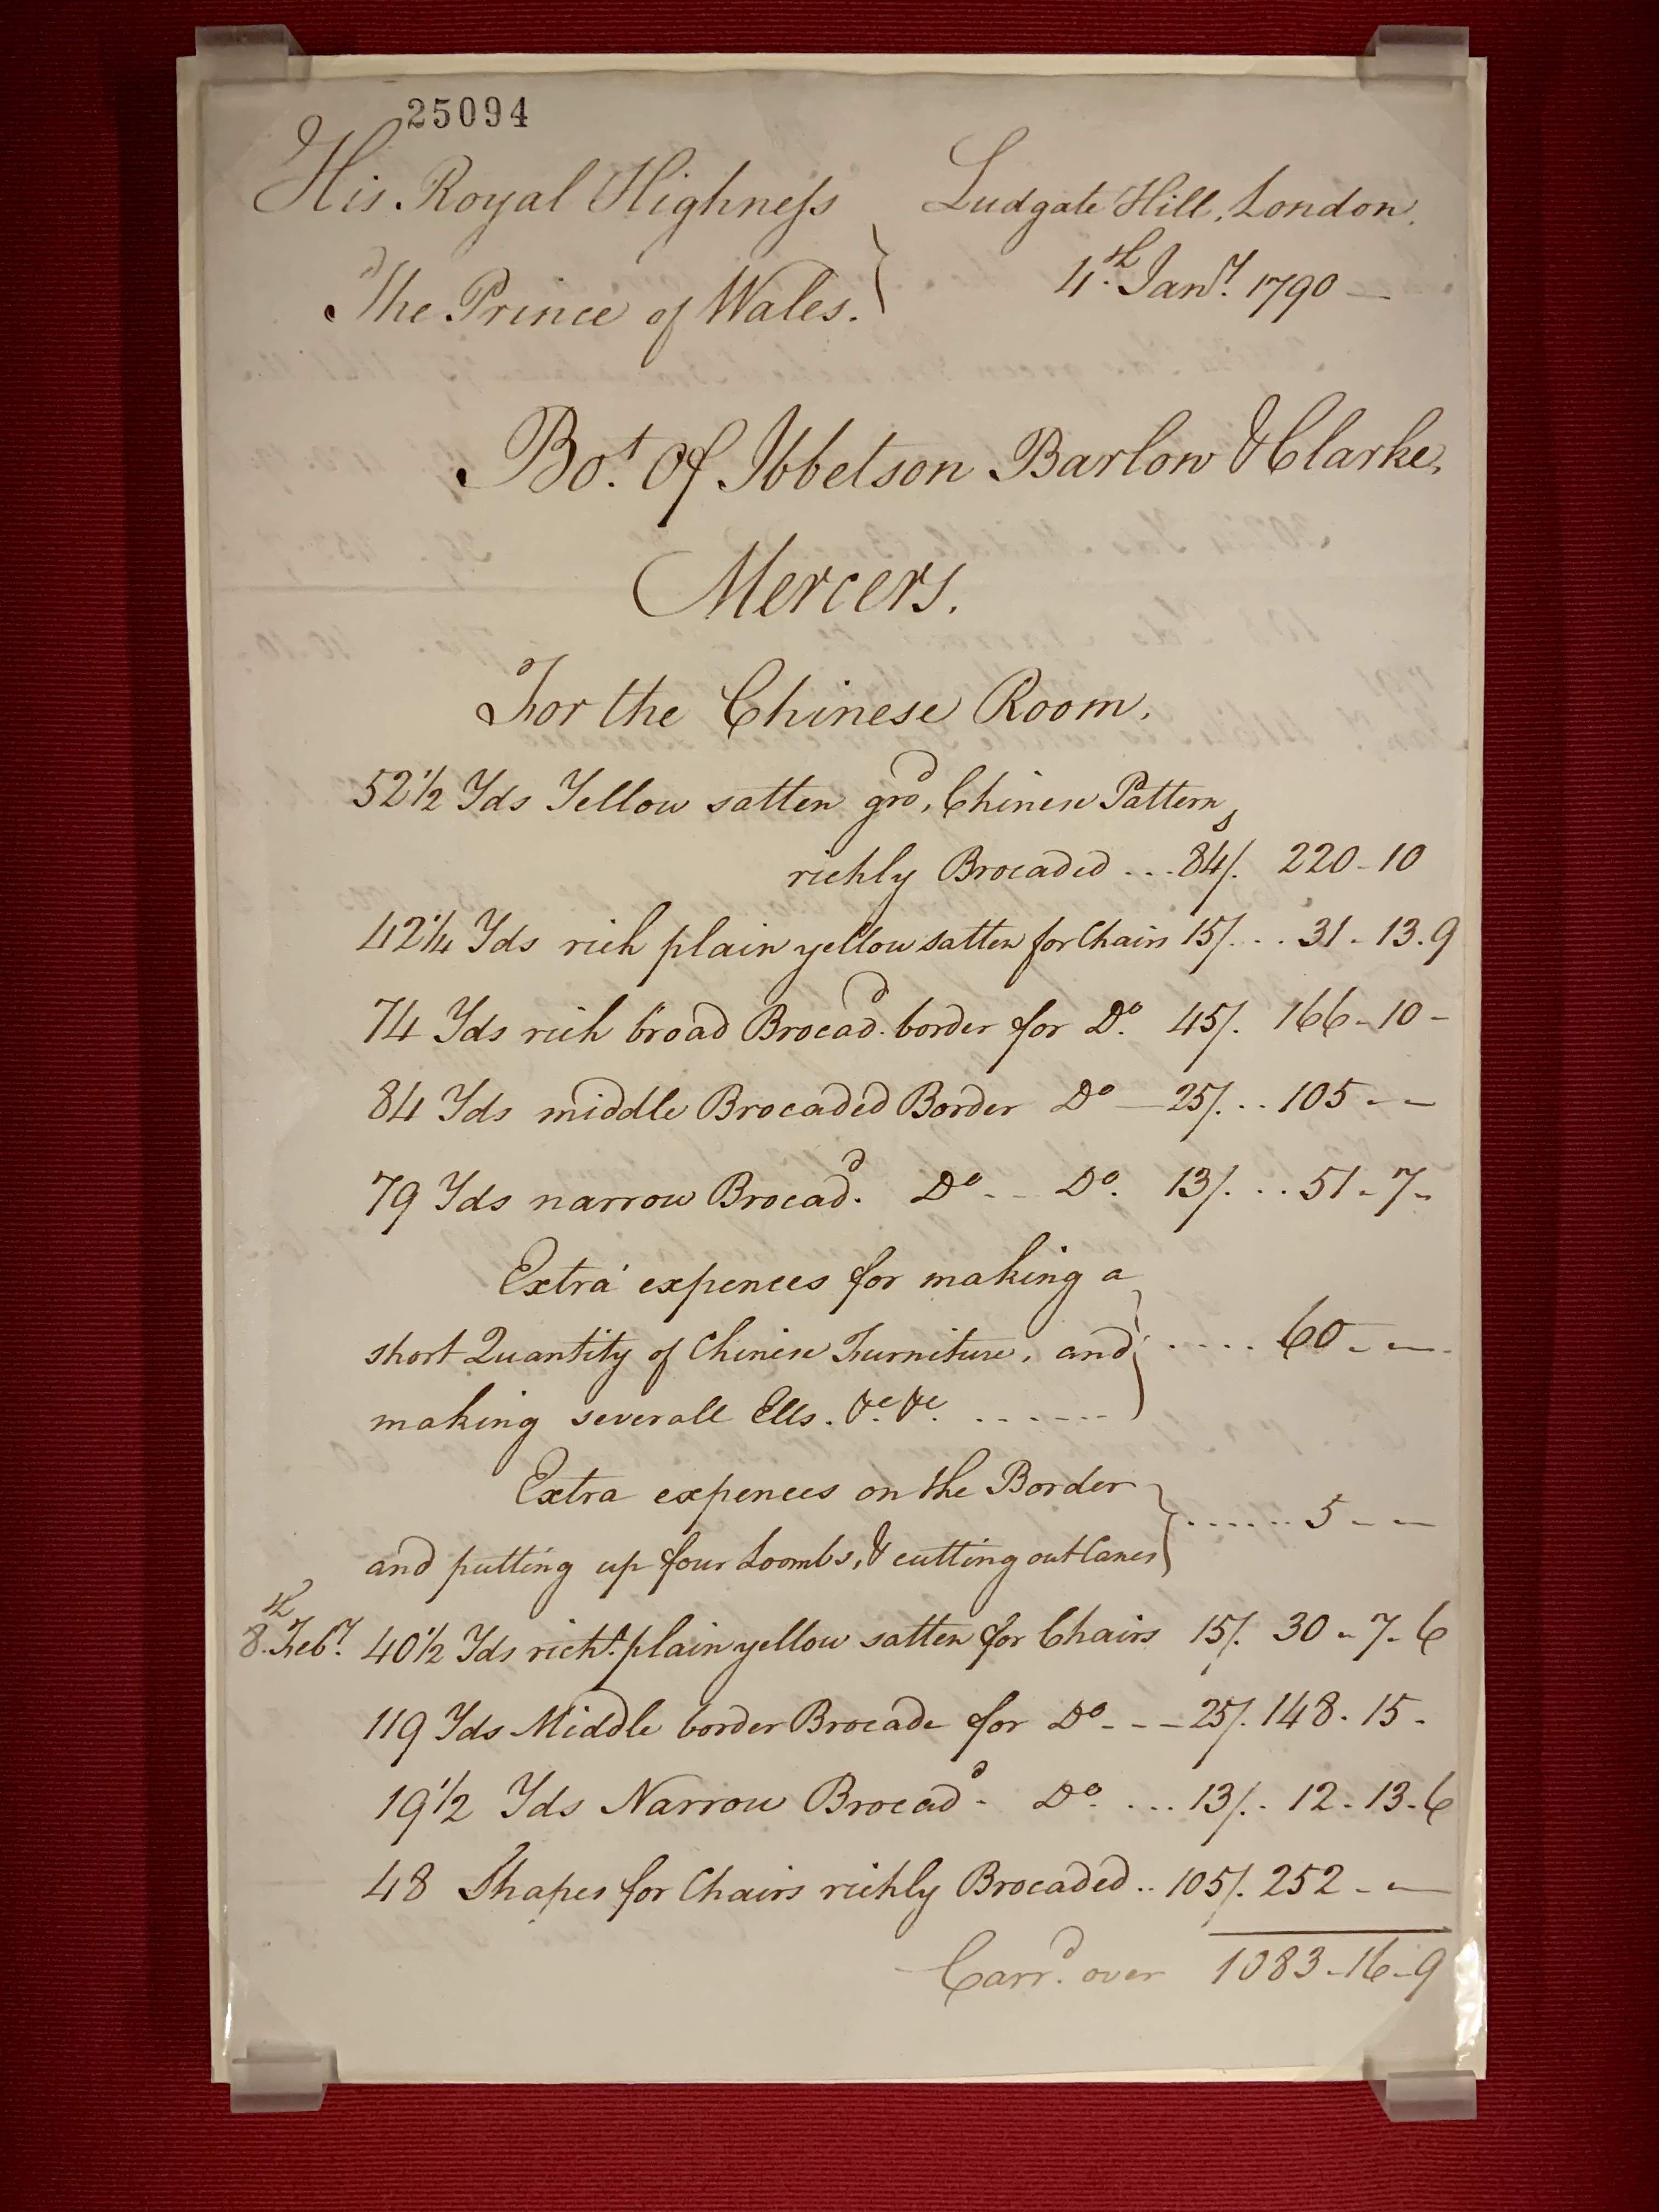 25094
His Royal Highneſs } Ludgate Hill, London.
The Prince of Wales. } 4.th Jan.y 1790 —
Bo.t Of Ibbetson Barlow & Clarke,
Mercers.
For the Chinese Room.
52 1/2 Yds Yellow satten gro.d, Chinese Pattern,
richly Brocaded ... 84/. 220 - 10
42 1/4 Yds rich plain yellow satten for Chairs 15/. .. 31 - 13. 9
74 Yds rich broad Brocad.d border for D.o 45/. 166 - 10 -
84 Yds middle Brocaded Border D.o — 25/. .. 105 - -
79 Yds narrow Brocad.d D.o - - D.o. 13/. .. 51 - 7 -
Extra expences for making a
short Quantity of Chinese Furniture, and } ..... 60 - -
making severall Ells. &c. &c. ......
Extra expences on the Border
and putting up four Loombs, & cutting out Canes } ...... 5 - -
8.th Feb.y 40 1/2 Yds rich plain yellow satten for Chairs 15/. 30 - 7 - 6
119 Yds Middle border Brocade for D.o - - - 25/. 148. 15 -
19 1/2 Yds Narrow Brocad.d D.o. ... 13/. 12 - 13 - 6
48 Shapes for Chairs richly Brocaded .. 105/. 252 - -
Carr.d over 1083 - 16 - 9